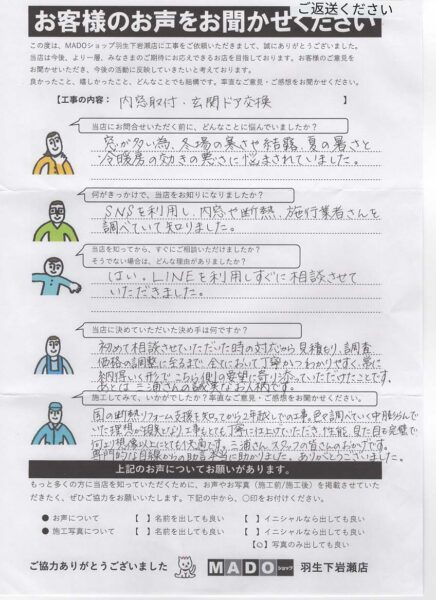 ご返送ください
お客様のお声をお聞かせください
この度は、MADOショップ羽生下岩瀬店に工事をご依頼いただきまして、誠にありがとうございました。
当店は今後、より一層、みなさまのご期待にお応えできるお店を目指しております。お客様のご意見を
お聞かせいただき、今後の活動に反映していきたいと考えております。
良かったこと、嬉しかったこと、どんなことでも結構です。率直なご意見・ご感想をお聞かせください。
【工事の内容： 内窓取付・玄関ドア交換 】
当店にお問合せいただく前に、どんなことに悩んでいましたか？
窓が多い為、冬場の寒さや結露、夏の暑さと
冷暖房の効きの悪さに悩まされていました。
何がきっかけで、当店をお知りになりましたか？
SNSを利用し、内窓や断熱、施行業者さんを
調べていて知りました。
当店を知ってから、すぐにご相談いただけましたか？
そうでない場合は、どんな理由がありましたか？
はい。LINEを利用しすぐに相談させて
いただきました。
当店に決めていただいた決め手は何ですか？
初めて相談させていただいた時の対応から見積もり、調査
価格の調整に至るまで全てにおいて丁寧かつわかりやすく、常に
納得いく形で、こちら側の要望に寄り添っていただけたことです。
あとは三浦さんの誠実なお人柄です。
施工してみて、いかがでしたか？率直なご意見・ご感想をお聞かせください。
国の断熱リフォーム支援を知ってから2年越しでの工事。色々調べていく中で膨らんで
いた理想が現実となり工事もとても丁寧に仕上げていただき、性能、見た目も完璧で
何より想像以上にとても快適です。三浦さん、スタッフの皆さんのおかげです。
専門的な目線からの助言本当に助かりました。ありがとうございました。
上記のお声についてお願いがあります。
もっと多くの方に当店を知っていただくために、お声やお写真（施工前/施工後）を掲載させていた
だきたく、ぜひご協力をお願いいたします。下記の中から、〇印をお付けください。
● お声について 【 】名前を出しても良い 【 】イニシャルなら出しても良い
● 施工写真について 【 】名前を出しても良い 【 】イニシャルなら出しても良い
【○】写真のみ出しても良い
ご協力ありがとうございました MADOショップ 羽生下岩瀬店